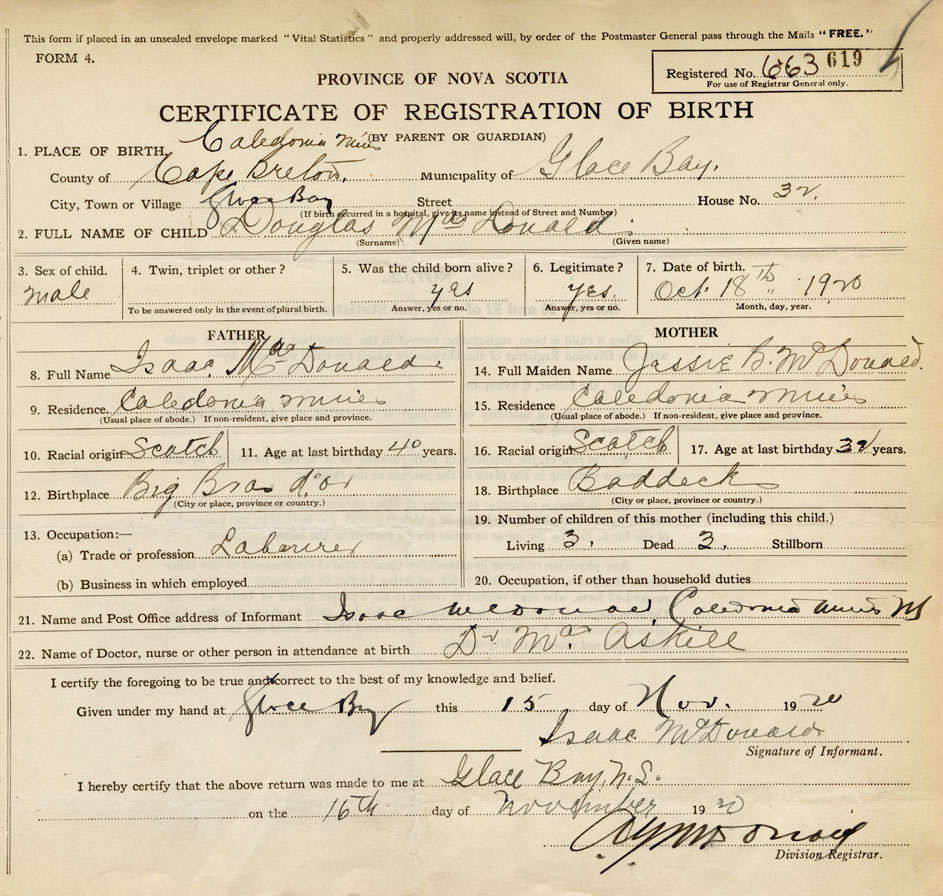 This form if placed in an unsealed envelope marked "Vital Statistics" and properly addressed will, by order of the Postmaster General pass through the Mails "FREE."
FORM 4.
Registered No. 663 619
For use of Registrar General only.
PROVINCE OF NOVA SCOTIA
CERTIFICATE OF REGISTRATION OF BIRTH
(BY PARENT OR GUARDIAN)
1. PLACE OF BIRTH, Caledonia Mines
County of Cape Breton. Municipality of Glace Bay.
City, Town or Village Glace Bay Street House No. 32.
(If birth occurred in a hospital, give its name instead of Street and Number)
2. FULL NAME OF CHILD Douglas MacDonald.
(Surname) (Given name)
3. Sex of child. 4. Twin, triplet or other? 5. Was the child born alive? 6. Legitimate? 7. Date of birth.
male yes yes. Oct. 18th 1920
To be answered only in the event of plural birth. Answer, yes or no. Answer, yes or no. Month, day, year.
FATHER MOTHER
8. Full Name Isaac MacDonald 14. Full Maiden Name Jessie B. McDonald.
9. Residence. Caledonia mines 15. Residence Caledonia mines
(Usual place of abode.) If non-resident, give place and province. (Usual place of abode.) If non-resident, give place and province.
10. Racial origin Scotch 11. Age at last birthday 40 years. 16. Racial origin Scotch 17. Age at last birthday 32 years.
12. Birthplace Big Bras d'or 18. Birthplace Baddeck
(City or place, province or country.) (City or place, province or country.)
13. Occupation:— 19. Number of children of this mother (including this child.)
(a) Trade or profession Labourer Living 3, Dead 3, Stillborn
(b) Business in which employed 20. Occupation, if other than household duties
21. Name and Post Office address of Informant Isaac McDonald, Caledonia Mines NS
22. Name of Doctor, nurse or other person in attendance at birth Dr MacAskill
I certify the foregoing to be true and correct to the best of my knowledge and belief.
Given under my hand at Glace Bay this 15 day of Nov. 1920
Isaac McDonald
Signature of Informant.
I hereby certify that the above return was made to me at Glace Bay, N.S.
on the 16th day of November 1920
Division Registrar.